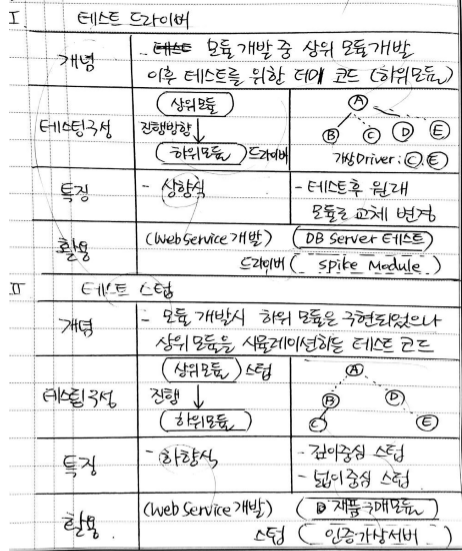 I 테스트 드라이버
개념
- 테스트 모듈 개발 중 상위 모듈개발
이후 테스트를 위한 더미 코드 (하위모듈)
테스팅구성
상위모듈
진행방향
하위모듈 드라이버
A
B C D E
가상Driver: C, E
특징
- 상향식
- 테스트후 원래
모듈로 교체 변경
활용
(Web Service 개발) (DB Server 테스트)
드라이버 ( Spike Module )
II 테스트 스텁
개념
- 모듈 개발시 하위 모듈은 구현되었으나
상위모듈을 시뮬레이션하는 테스트 코드
테스팅구성
상위모듈 스텁
진행
하위모듈
A
B D
C E
특징
- 하향식
- 깊이중심 스텁
- 넓이중심 스텁
활용
(Web Service 개발) ( 제품구매모듈)
스텁 ( 인증가상서버 )